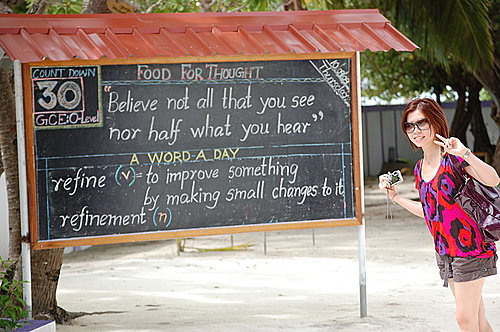 COUNT DOWN
30
G.C.E:O-Level
FOOD FOR THOUGHT
"Believe not all that you see
nor half what you hear"
A WORD A DAY
refine (v) = to improve something
by making small changes to it
refinement (n)